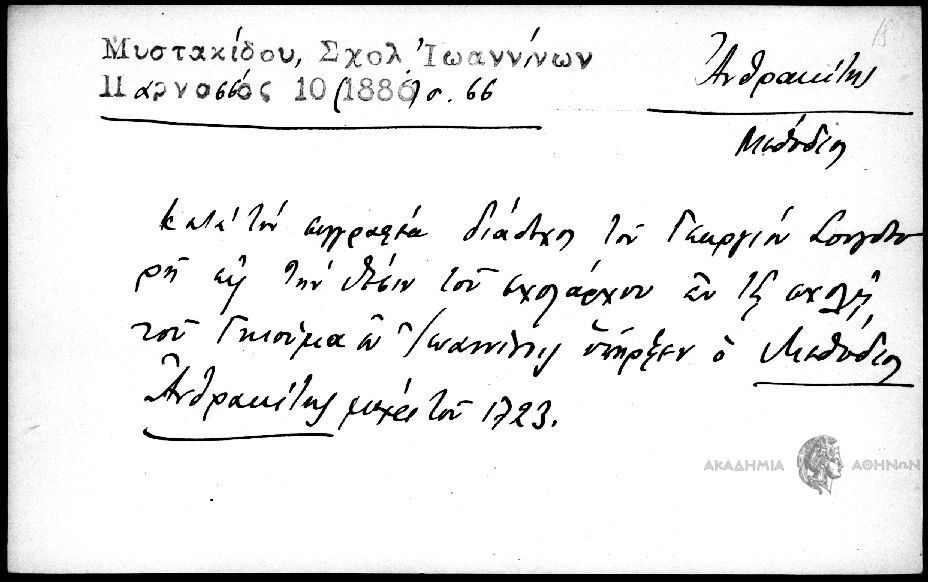 Μυστακίδου, Σχολ. Ἰωαννίνων
Παρνασσός 10 (1886) σ. 66
Ἀνθρακίτης
Μεθόδιος
Κατά τόν συγγραφέα διάδοχος τοῦ Γεωργίου Σουγδου
ρῆ εἰς τήν θέσιν τοῦ σχολάρχου ἐν τῇ σχολῇ
τοῦ Γκιούμα ἐν Ἰωαννίνοις ὑπῆρξεν ὁ Μεθόδιος
Ἀνθρακίτης μέχρι τοῦ 1723.
ΑΚΑΔΗΜΙΑ ΑΘΗΝΩΝ